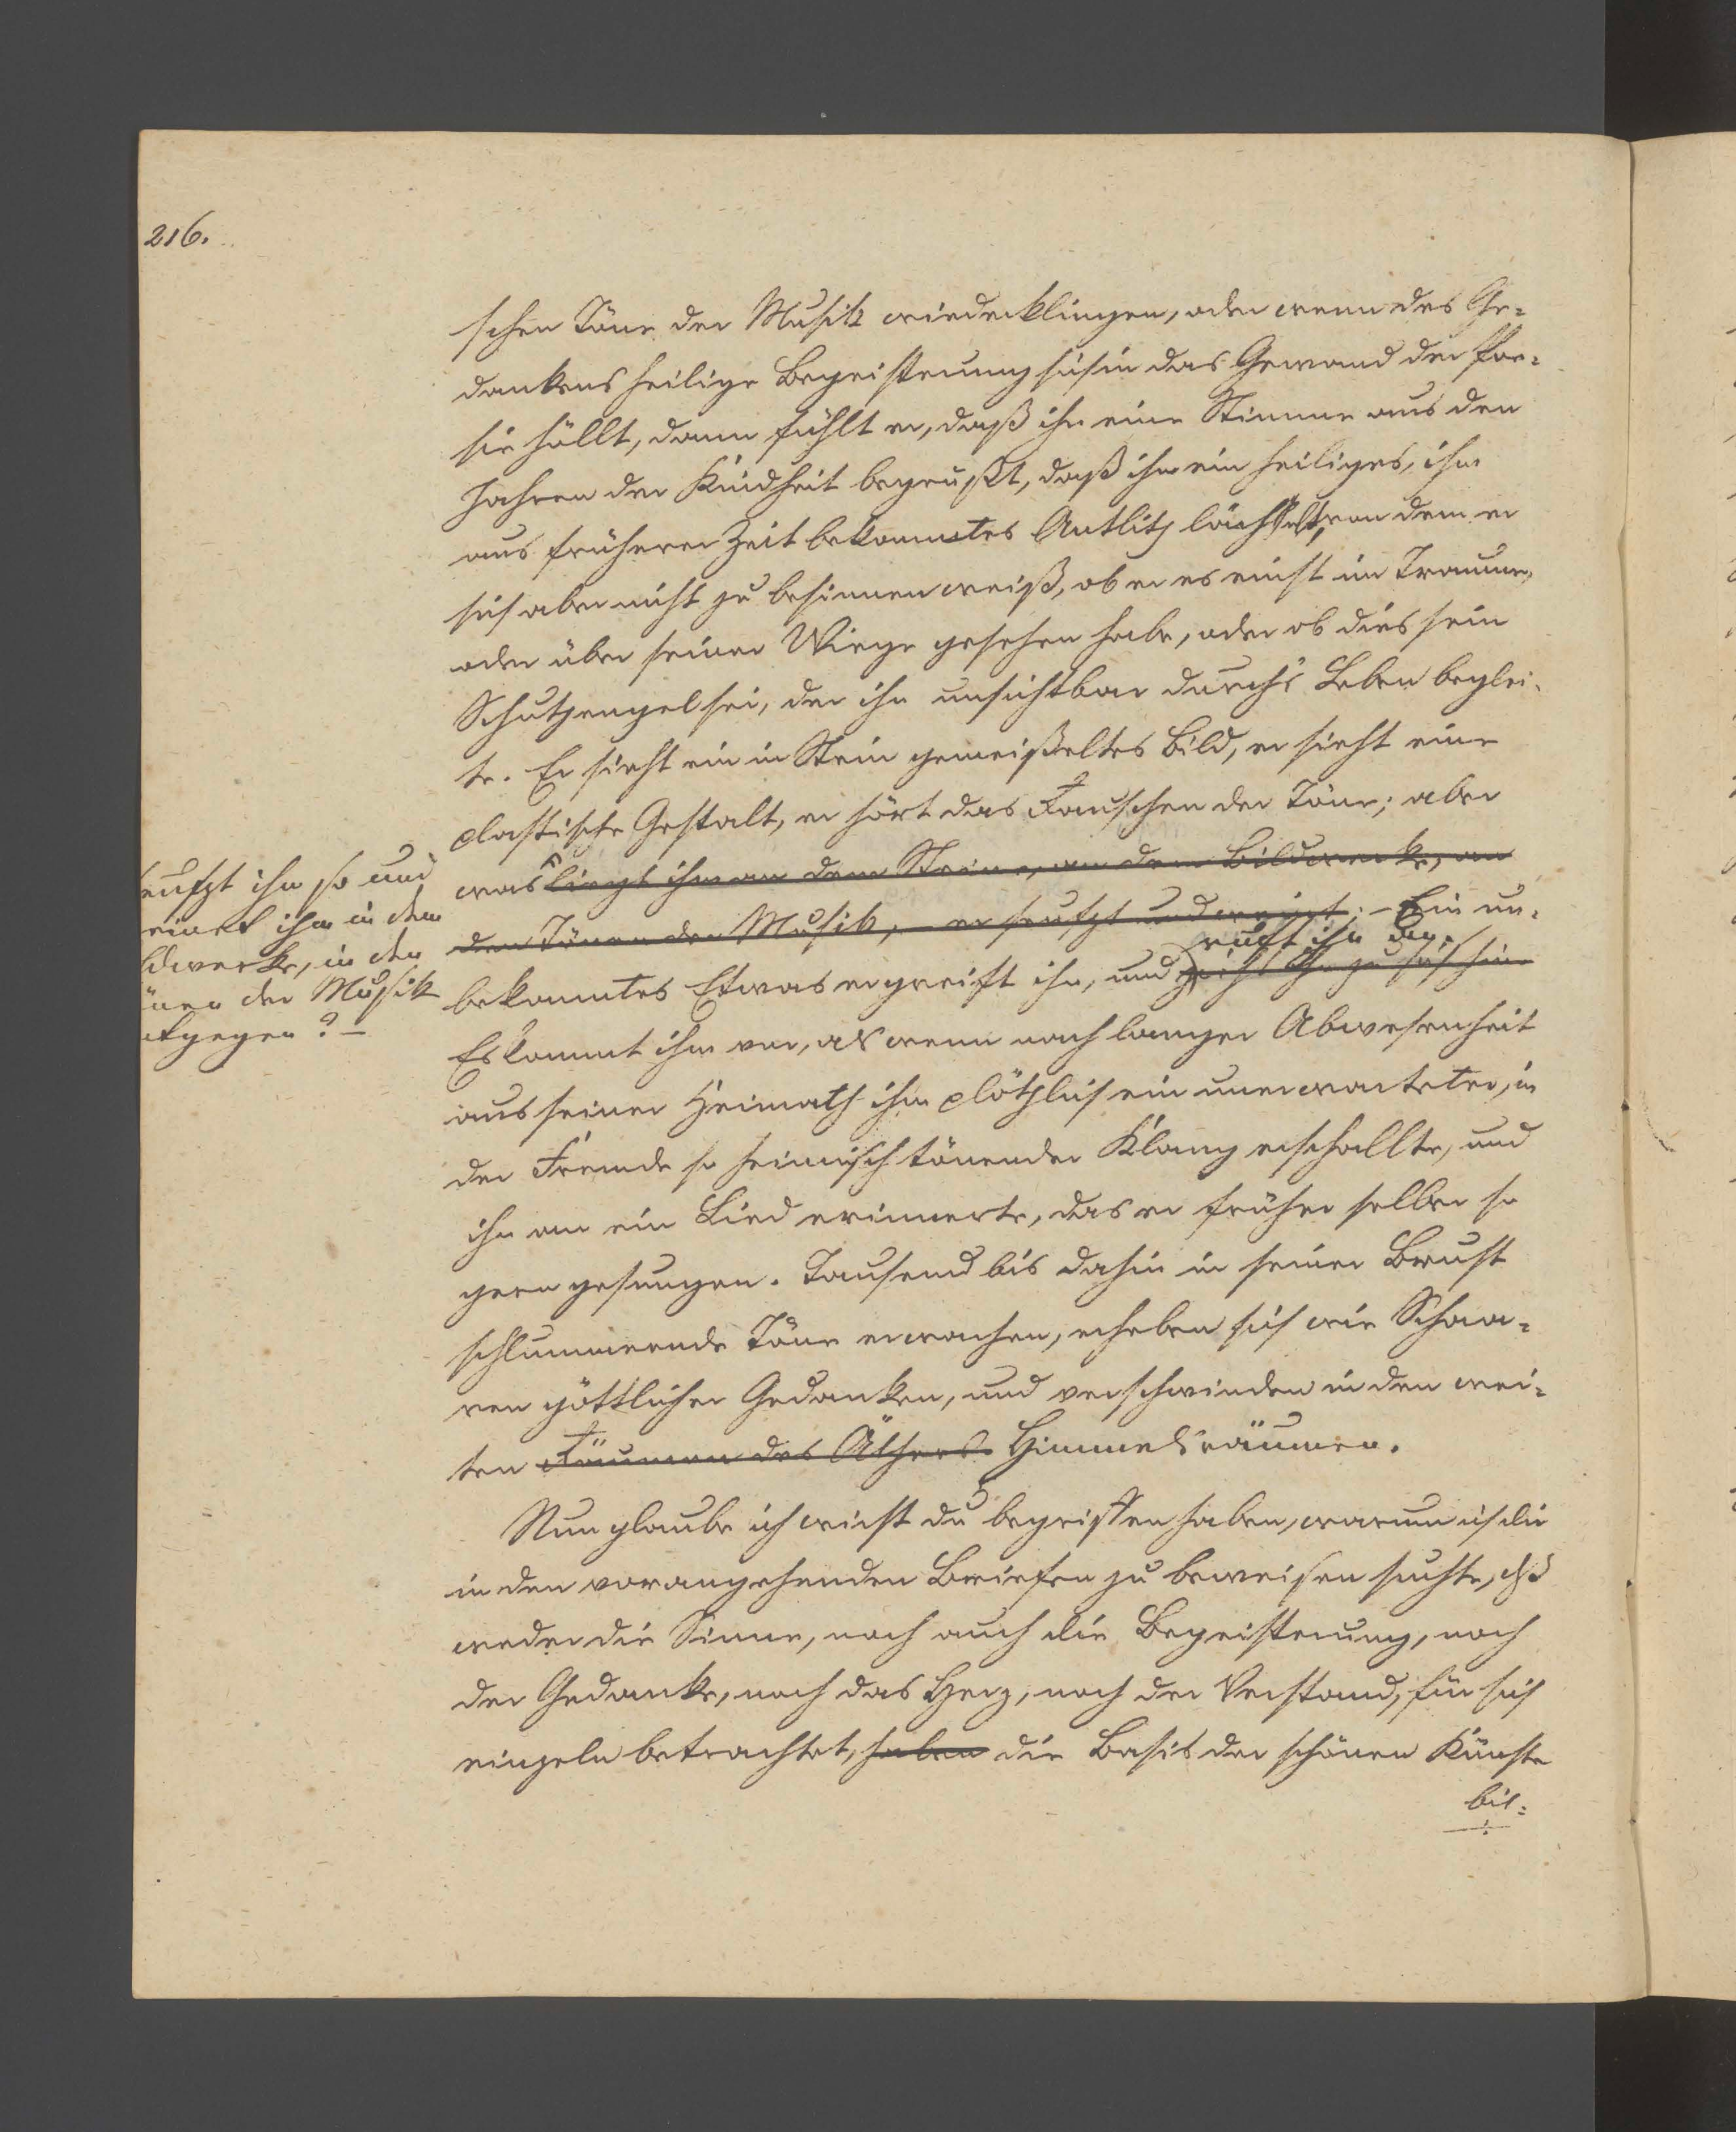 216.
schen Töne der Musik wiederklingen, oder wenn des Ge=
dankens heilige Begeisterung sich in das Gewand der Poe=
sie hüllt, dann fühlt er, daß ihn eine Stimme aus den
Jahren der Kindheit begrüßt, daß ihm ein heiliges, ihm
aus früherer Zeit bekanntes Antlitz lächelt, von dem er
sich aber nicht zu besinnen weiß, ob er es einst im Traume,
oder über seiner Wiege gesehen habe, oder ob dies sein
Schutzengel sei, der ihn unsichtbar durch's Leben beglei=
te. Er sieht ein in Stein gemeißeltes Bild, er sieht eine
plastische Gestalt, er hört das Rauschen der Töne; aber
was liegt ihm an dem Steine, an dem Bildwerke, an
den Tönen der Musik, – er seufzt und weint; – Ein un=
ruft ihn an.
bekanntes Etwas ergreift ihn, und zieht ihn zu sich hin
Es kommt ihm vor, als wenn nach langer Abwesenheit
aus seiner Heimath ihm plötzlich ein unerwarteter, in
der Fremde so heimisch tönender Klang erschallte, und
ihn an ein Lied erinnerte, das er früher selber so
gern gesungen. Tausend bis dahin in seiner Brust
schlummernde Töne erwachen, erheben sich wie Schaa=
ren göttlicher Gedanken, und verschwinden in den wei=
ten Räumen des Äthers Himmelsräumen.
Nun glaube ich wirst du begriffen haben, warum ich dir
in den vorangehenden Briefen zu beweisen suchte, daß
weder die Sinne, noch auch die Begeisterung, noch
der Gedanke, noch das Herz, noch der Verstand, für sich
einzeln betrachtet, haben die Basis der schönen Künste
bil=
seufzt ihm so und
weinet ihm in dem
ldwerke, in den
önen der Musik
ntgegen? –